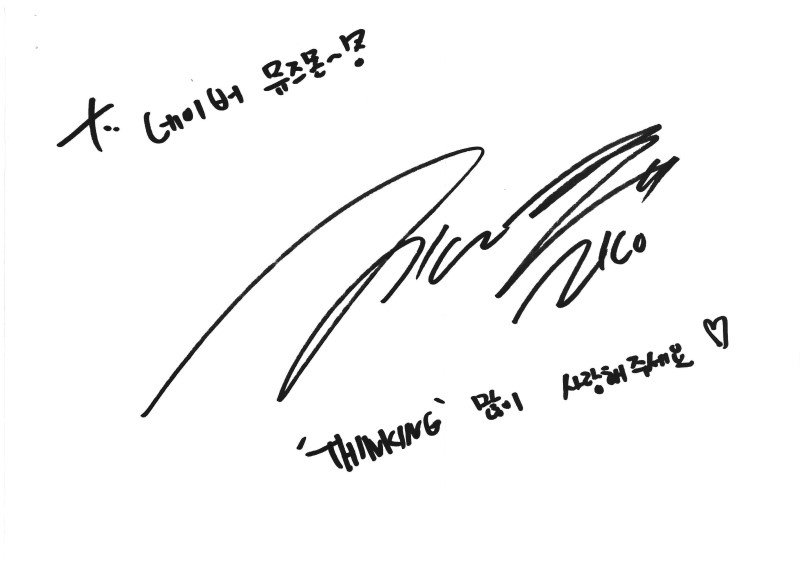 네이버 뮤즈몬~?
ZICO
'THINKING' 많이 사랑해주세요 ♡